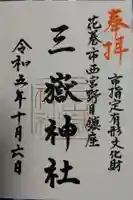 奉拝
市指定有形文化財
花巻市西宮野目鎮座
三嶽神社
令和五年十月六日